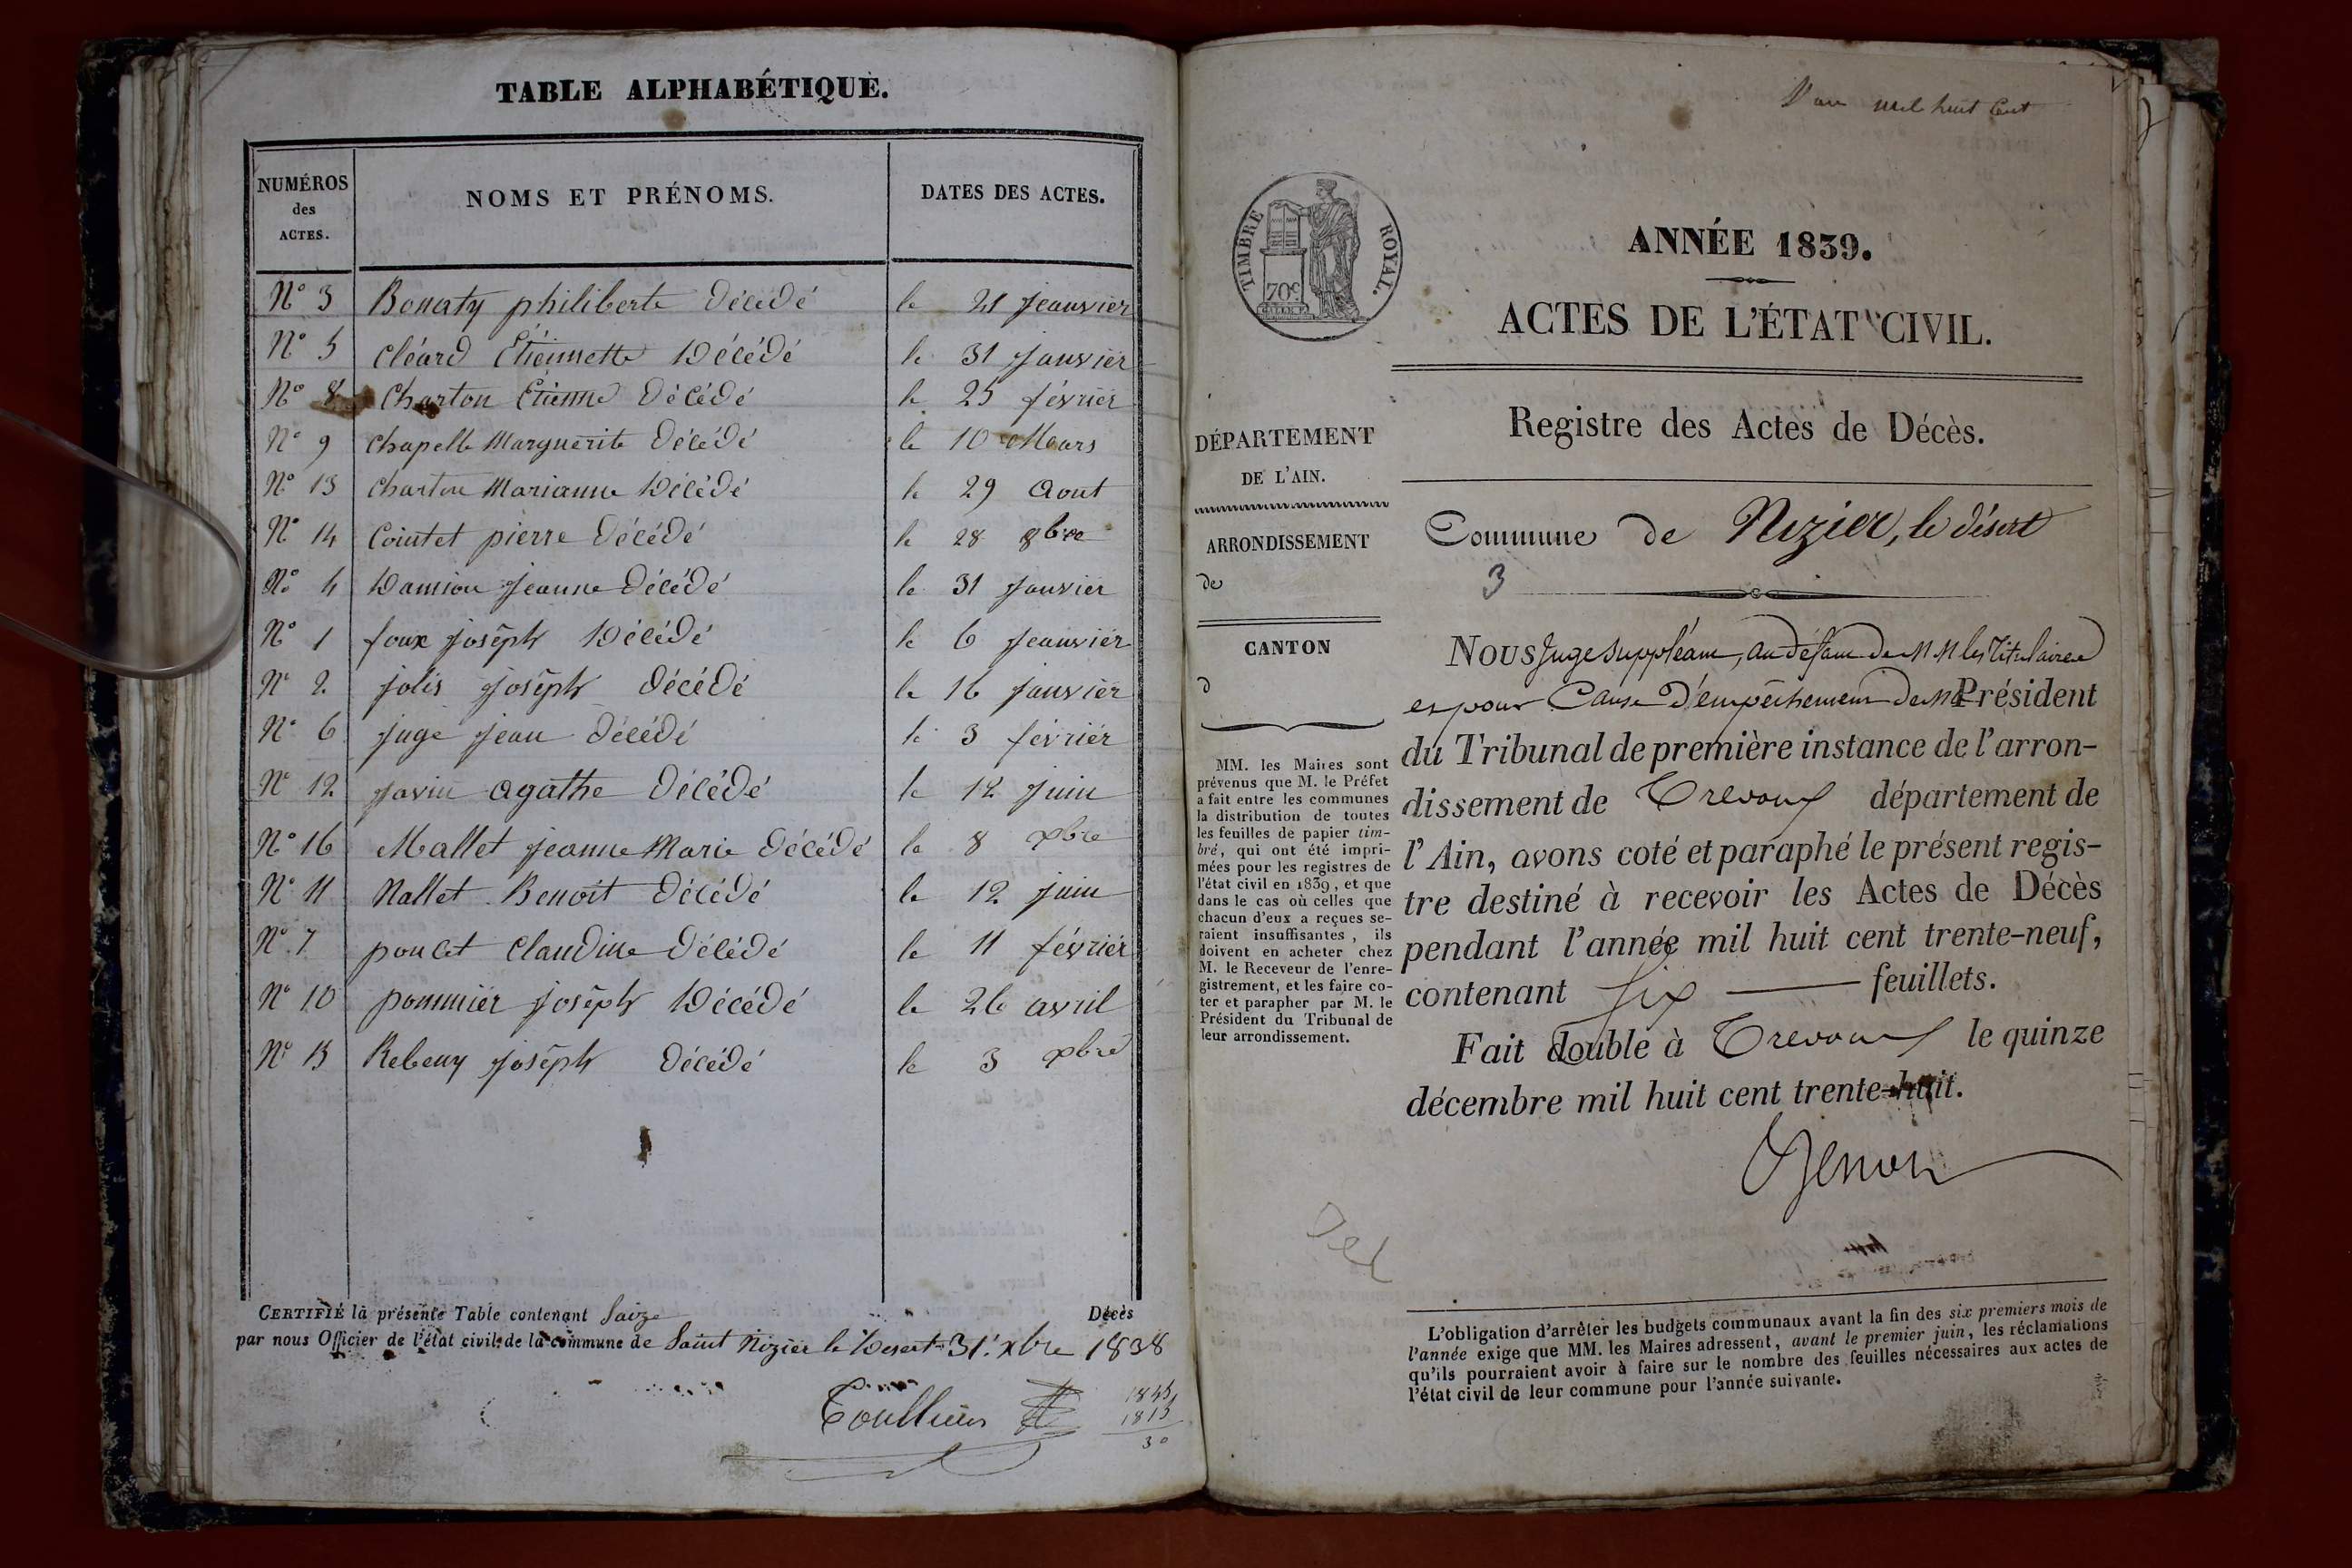 TABLE ALPHABÉTIQUE.
NUMÉROS des ACTES. NOMS ET PRÉNOMS. DATES DES ACTES.
N° 3 Bonaty philiberte décédé le 21 jeanvier
N° 5 Cléard Étiennette Décédé le 31 janvier
N° 8 Charton Étienne décédé le 25 février
N° 9 Chapelle Marguerite décédé le 10 Mars
N° 13 Charton Marianne Décédé le 29 Aout
N° 14 Cointet pierre décédé le 28 8bre
N° 4 Damion Jeanne décédé le 31 Janvier
N° 1 foux joseph Décédé le 6 Jeanvier
N° 2 jolis joseph décédé le 16 janvier
N° 6 juge jean décédé le 3 février
N° 12 javin agathe décédé le 12 juin
N° 16 Mallet jeanne Marie décédé le 8 xbre
N° 11 Nallet Benoit décédé le 12 juin
N° 7 poncet Claudine décédé le 11 février
N° 10 pommier joseph Décédé le 26 avril
N° 15 Rebeuy joseph décédé le 3 xbre
CERTIFIÉ la présente Table contenant Saize Décès
par nous Officier de l'état civil de la commune de Saint Nizier le Desert 31. xbre 1838
1845
1815
30
L'an mil huit Cent
TIMBRE ROYAL.
70c
ANNÉE 1839.
ACTES DE L'ÉTAT CIVIL.
Registre des Actes de Décès.
DÉPARTEMENT
DE L'AIN.
ARRONDISSEMENT
de
CANTON
d
MM. les Maires sont
prévenus que M. le Préfet
a fait entre les communes
la distribution de toutes
les feuilles de papier tim-
bré, qui ont été impri-
mées pour les registres de
l'état civil en 1839, et que
dans le cas où celles que
chacun d'eux a reçues se-
raient insuffisantes, ils
doivent en acheter chez
M. le Receveur de l'enre-
gistrement, et les faire co-
ter et parapher par M. le
Président du Tribunal de
leur arrondissement.
Commune de Nizier, le désert
3
NOUS Juge suppléant, au défaut de MM les Titulaires
et pour Cause d'empêchement de M. le Président
du Tribunal de première instance de l'arron-
dissement de Trevoux département de
l'Ain, avons coté et paraphé le présent regis-
tre destiné à recevoir les Actes de Décès
pendant l'année mil huit cent trente-neuf,
contenant six feuillets.
Fait double à Trevoux le quinze
décembre mil huit cent trente-huit.
L'obligation d'arrêter les budgets communaux avant la fin des six premiers mois de
l'année exige que MM. les Maires adressent, avant le premier juin, les réclamations
qu'ils pourraient avoir à faire sur le nombre des feuilles nécessaires aux actes de
l'état civil de leur commune pour l'année suivante.